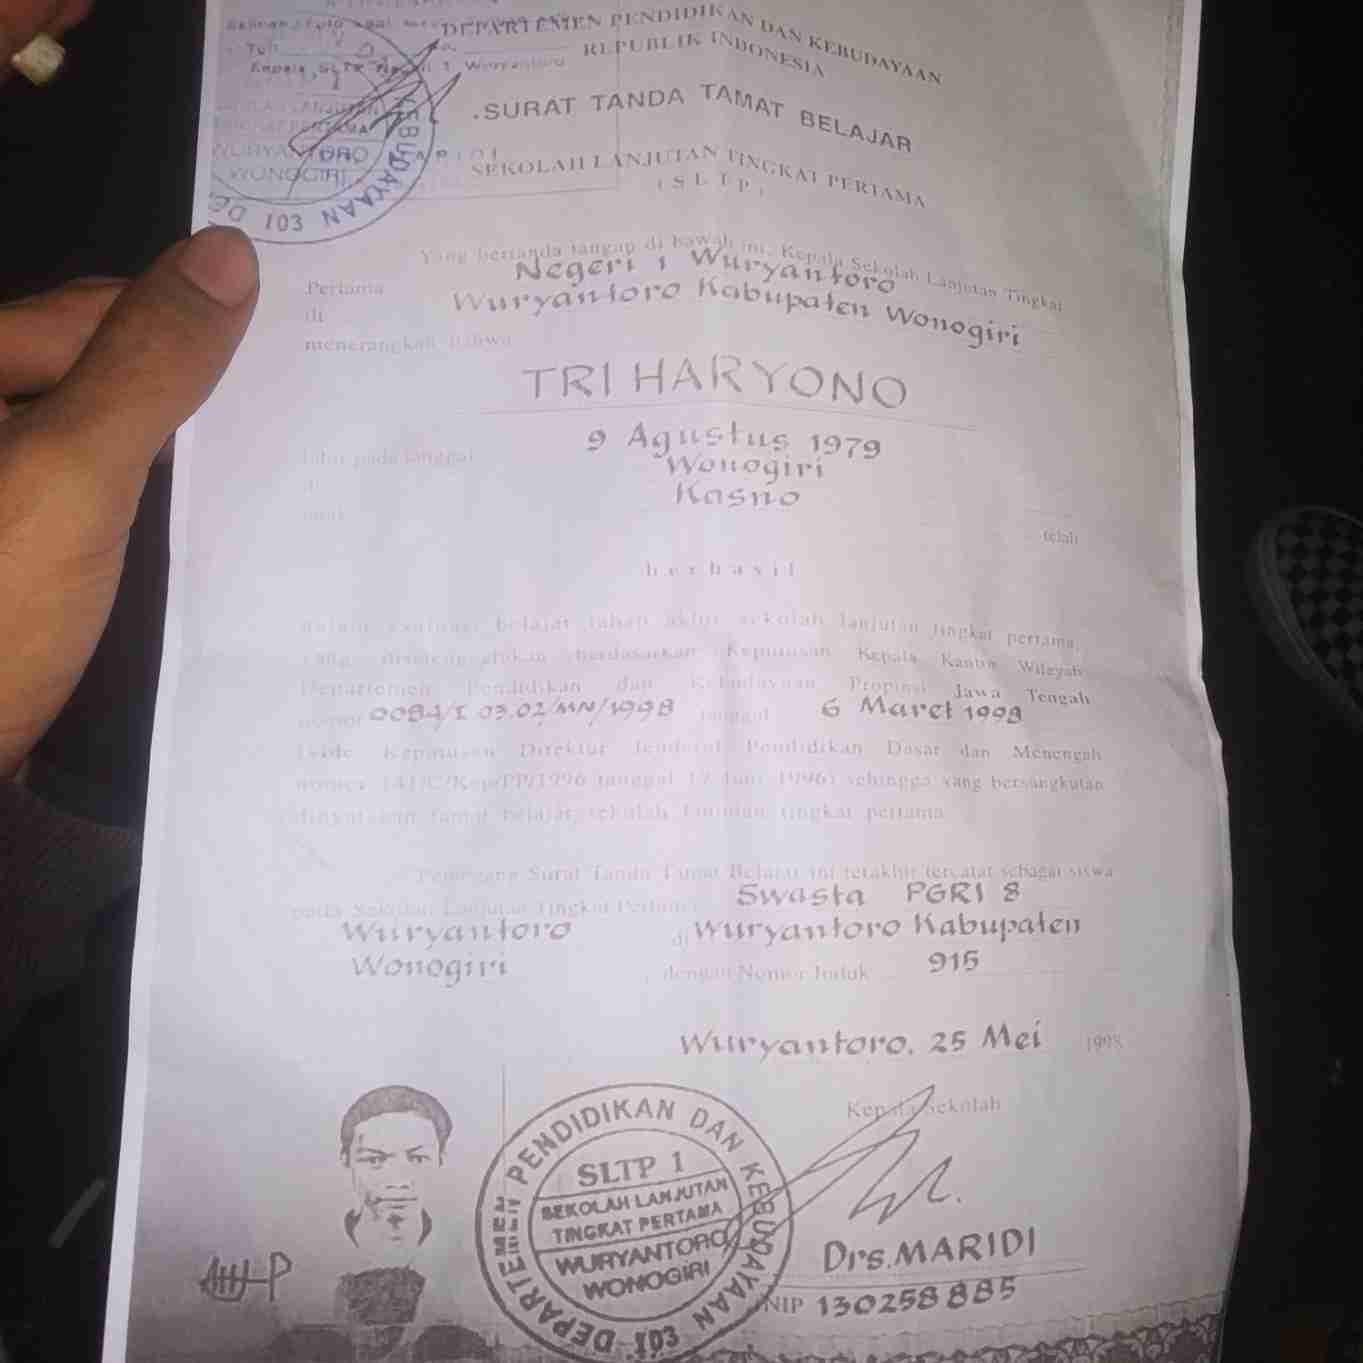 DEPARTEMEN PENDIDIKAN DAN KEBUDAYAAN
REPUBLIK INDONESIA
SURAT TANDA TAMAT BELAJAR
SEKOLAH LANJUTAN TINGKAT PERTAMA
( S L T P )
Kepala SLTP 1 Wuryantoro
TINGKAT PERTAMA
WURYANTORO
WONOGIRI
KEBUDAYAAN 103 DE
Yang bertanda tangan di bawah ini, Kepala Sekolah Lanjutan Tingkat
Pertama Negeri 1 Wuryantoro
di Wuryantoro Kabupaten Wonogiri
menerangkan bahwa
TRI HARYONO
lahir pada tanggal 9 Agustus 1979
Wonogiri
Kasno
telah
b e r h a s i l
dalam evaluasi belajar tahap akhir sekolah lanjutan tingkat pertama,
yang diselenggarakan berdasarkan Keputusan Kepala Kantor Wilayah
Departemen Pendidikan dan Kebudayaan Propinsi Jawa Tengah
nomor 0084/I.03.02/MN/1998 tanggal 6 Maret 1998
Keputusan Direktur Jenderal Pendidikan Dasar dan Menengah
nomor 141/C/Kep/PP/1996 tanggal 17 Juni 1996) sehingga yang bersangkutan
dinyatakan tamat belajar sekolah lanjutan tingkat pertama
Pemegang Surat Tanda Tamat Belajar ini terakhir tercatat sebagai siswa
pada Sekolah Lanjutan Tingkat Pertama Swasta PGRI 8
Wuryantoro di Wuryantoro Kabupaten
Wonogiri dengan Nomor Induk 915
Wuryantoro, 25 Mei 1998
Kepala Sekolah
DEPARTEMEN PENDIDIKAN DAN KEBUDAYAAN
SLTP 1
SEKOLAH LANJUTAN
TINGKAT PERTAMA
WURYANTORO
WONOGIRI
103
Drs. MARIDI
NIP 130258885